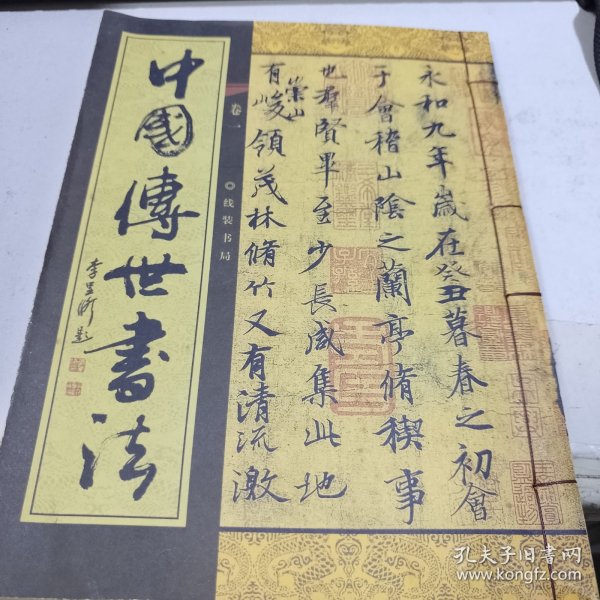 中國傳世書法
卷一
◎线装书局
永和九年歲在癸丑暮春之初會
于會稽山陰之蘭亭脩稧事
也群賢畢至少長咸集此地
有崇山峻領茂林脩竹又有清流激
孔夫子旧书网
www.kongfz.com